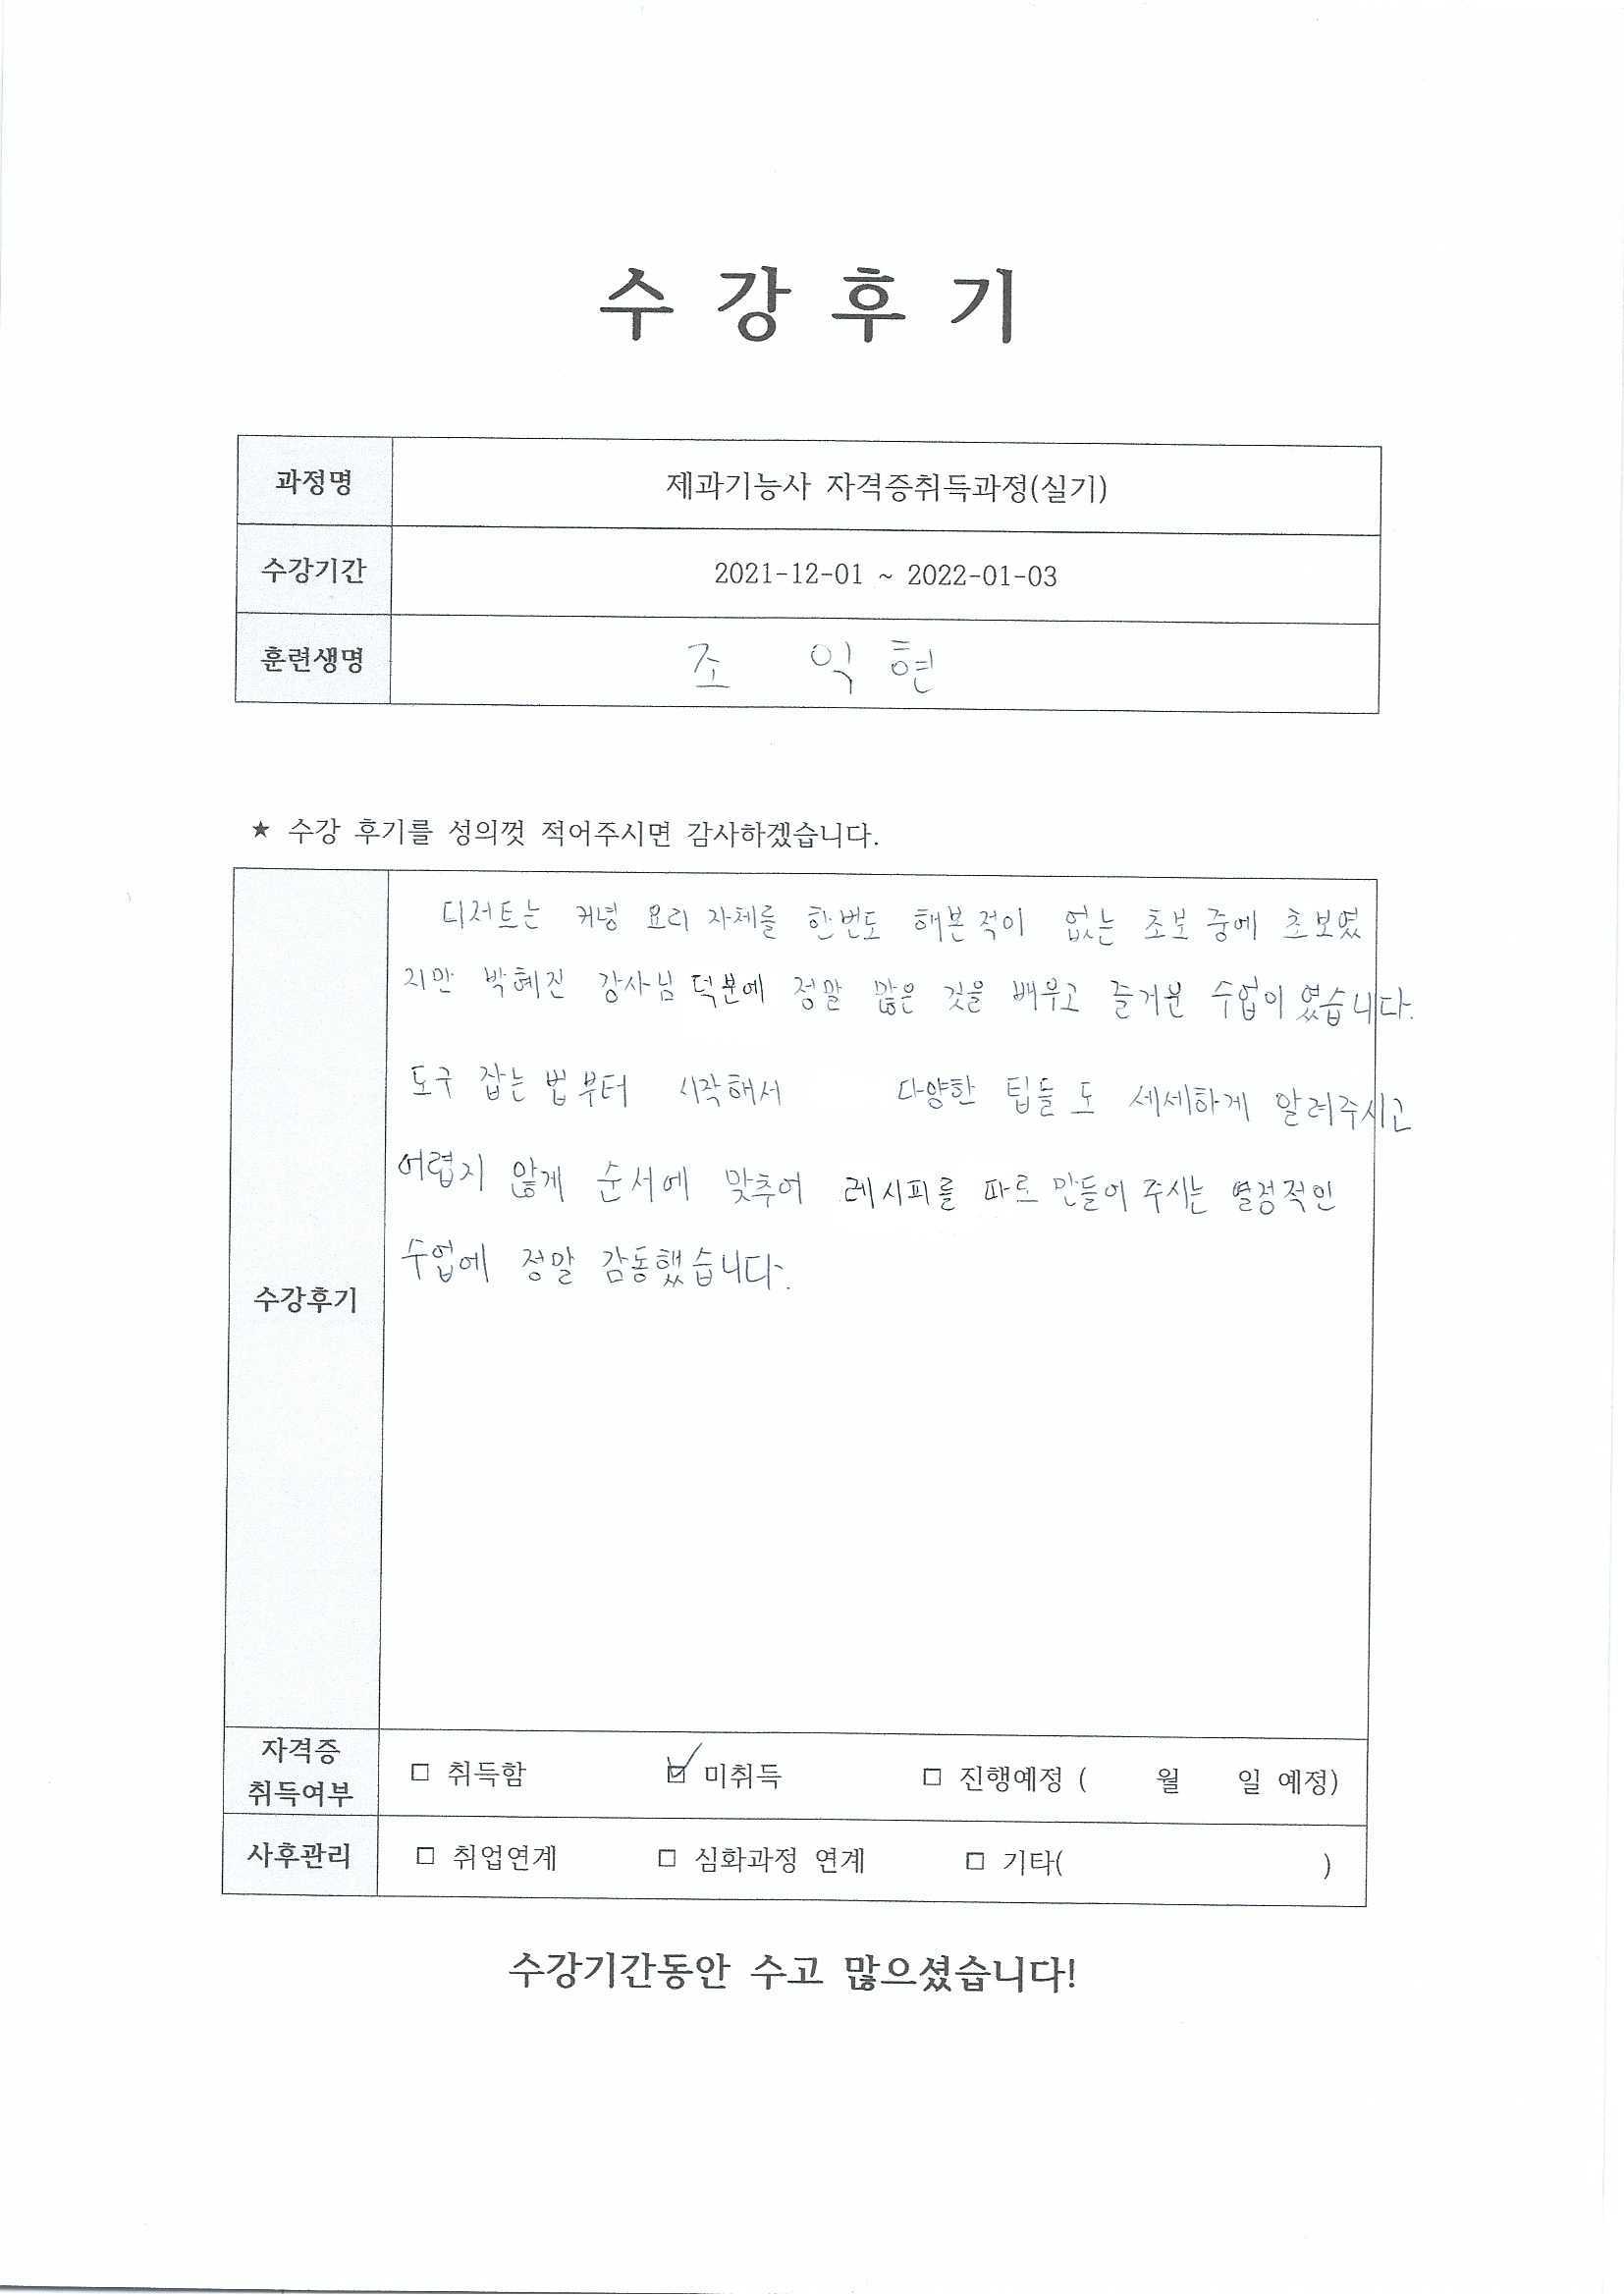 수 강 후 기
과정명 제과기능사 자격증취득과정(실기)
수강기간 2021-12-01 ~ 2022-01-03
훈련생명 조 익현
★ 수강 후기를 성의껏 적어주시면 감사하겠습니다.
디저트는 커녕 요리 자체를 한번도 해본적이 없는 초보 중에 초보였
지만 박혜진 강사님 덕분에 정말 많은 것을 배우고 즐거운 수업이 였습니다.
도구 잡는 법부터 시작해서 다양한 팁들도 세세하게 알려주시고
어렵지 않게 순서에 맞추어 레시피를 따로 만들어 주시는 열정적인
수업에 정말 감동했습니다.
수강후기
자격증
취득여부 □ 취득함 ☑ 미취득 □ 진행예정 ( 월 일 예정)
사후관리 □ 취업연계 □ 심화과정 연계 □ 기타( )
수강기간동안 수고 많으셨습니다!